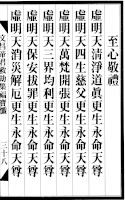 至心敬禮
虛明天清淨道眞更生永命天尊
虛明天四生慈父更生永命天尊
虛明天萬梵開張更生永命天尊
虛明天三界均利更生永命天尊
虛明天保安拔罪更生永命天尊
虛明天消災解厄更生永命天尊
昌帝君救劫集福寶懺
三十八